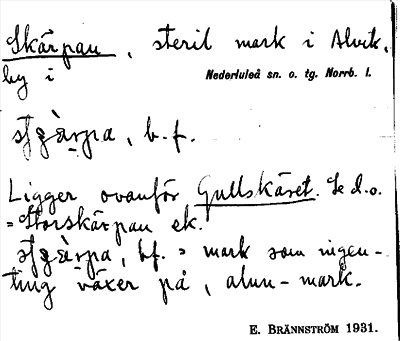 Skärpau, steril mark i Alvik,
by i Nederluleå sn. o. tg. Norrb. l.
b. f.
Ligger ovanför Gullskäret. Se d. o.
= Storskärpau ek.
bf. = mark som ingen-
ting växer på, alun-mark.
E. BRÄNNSTRÖM 1931.